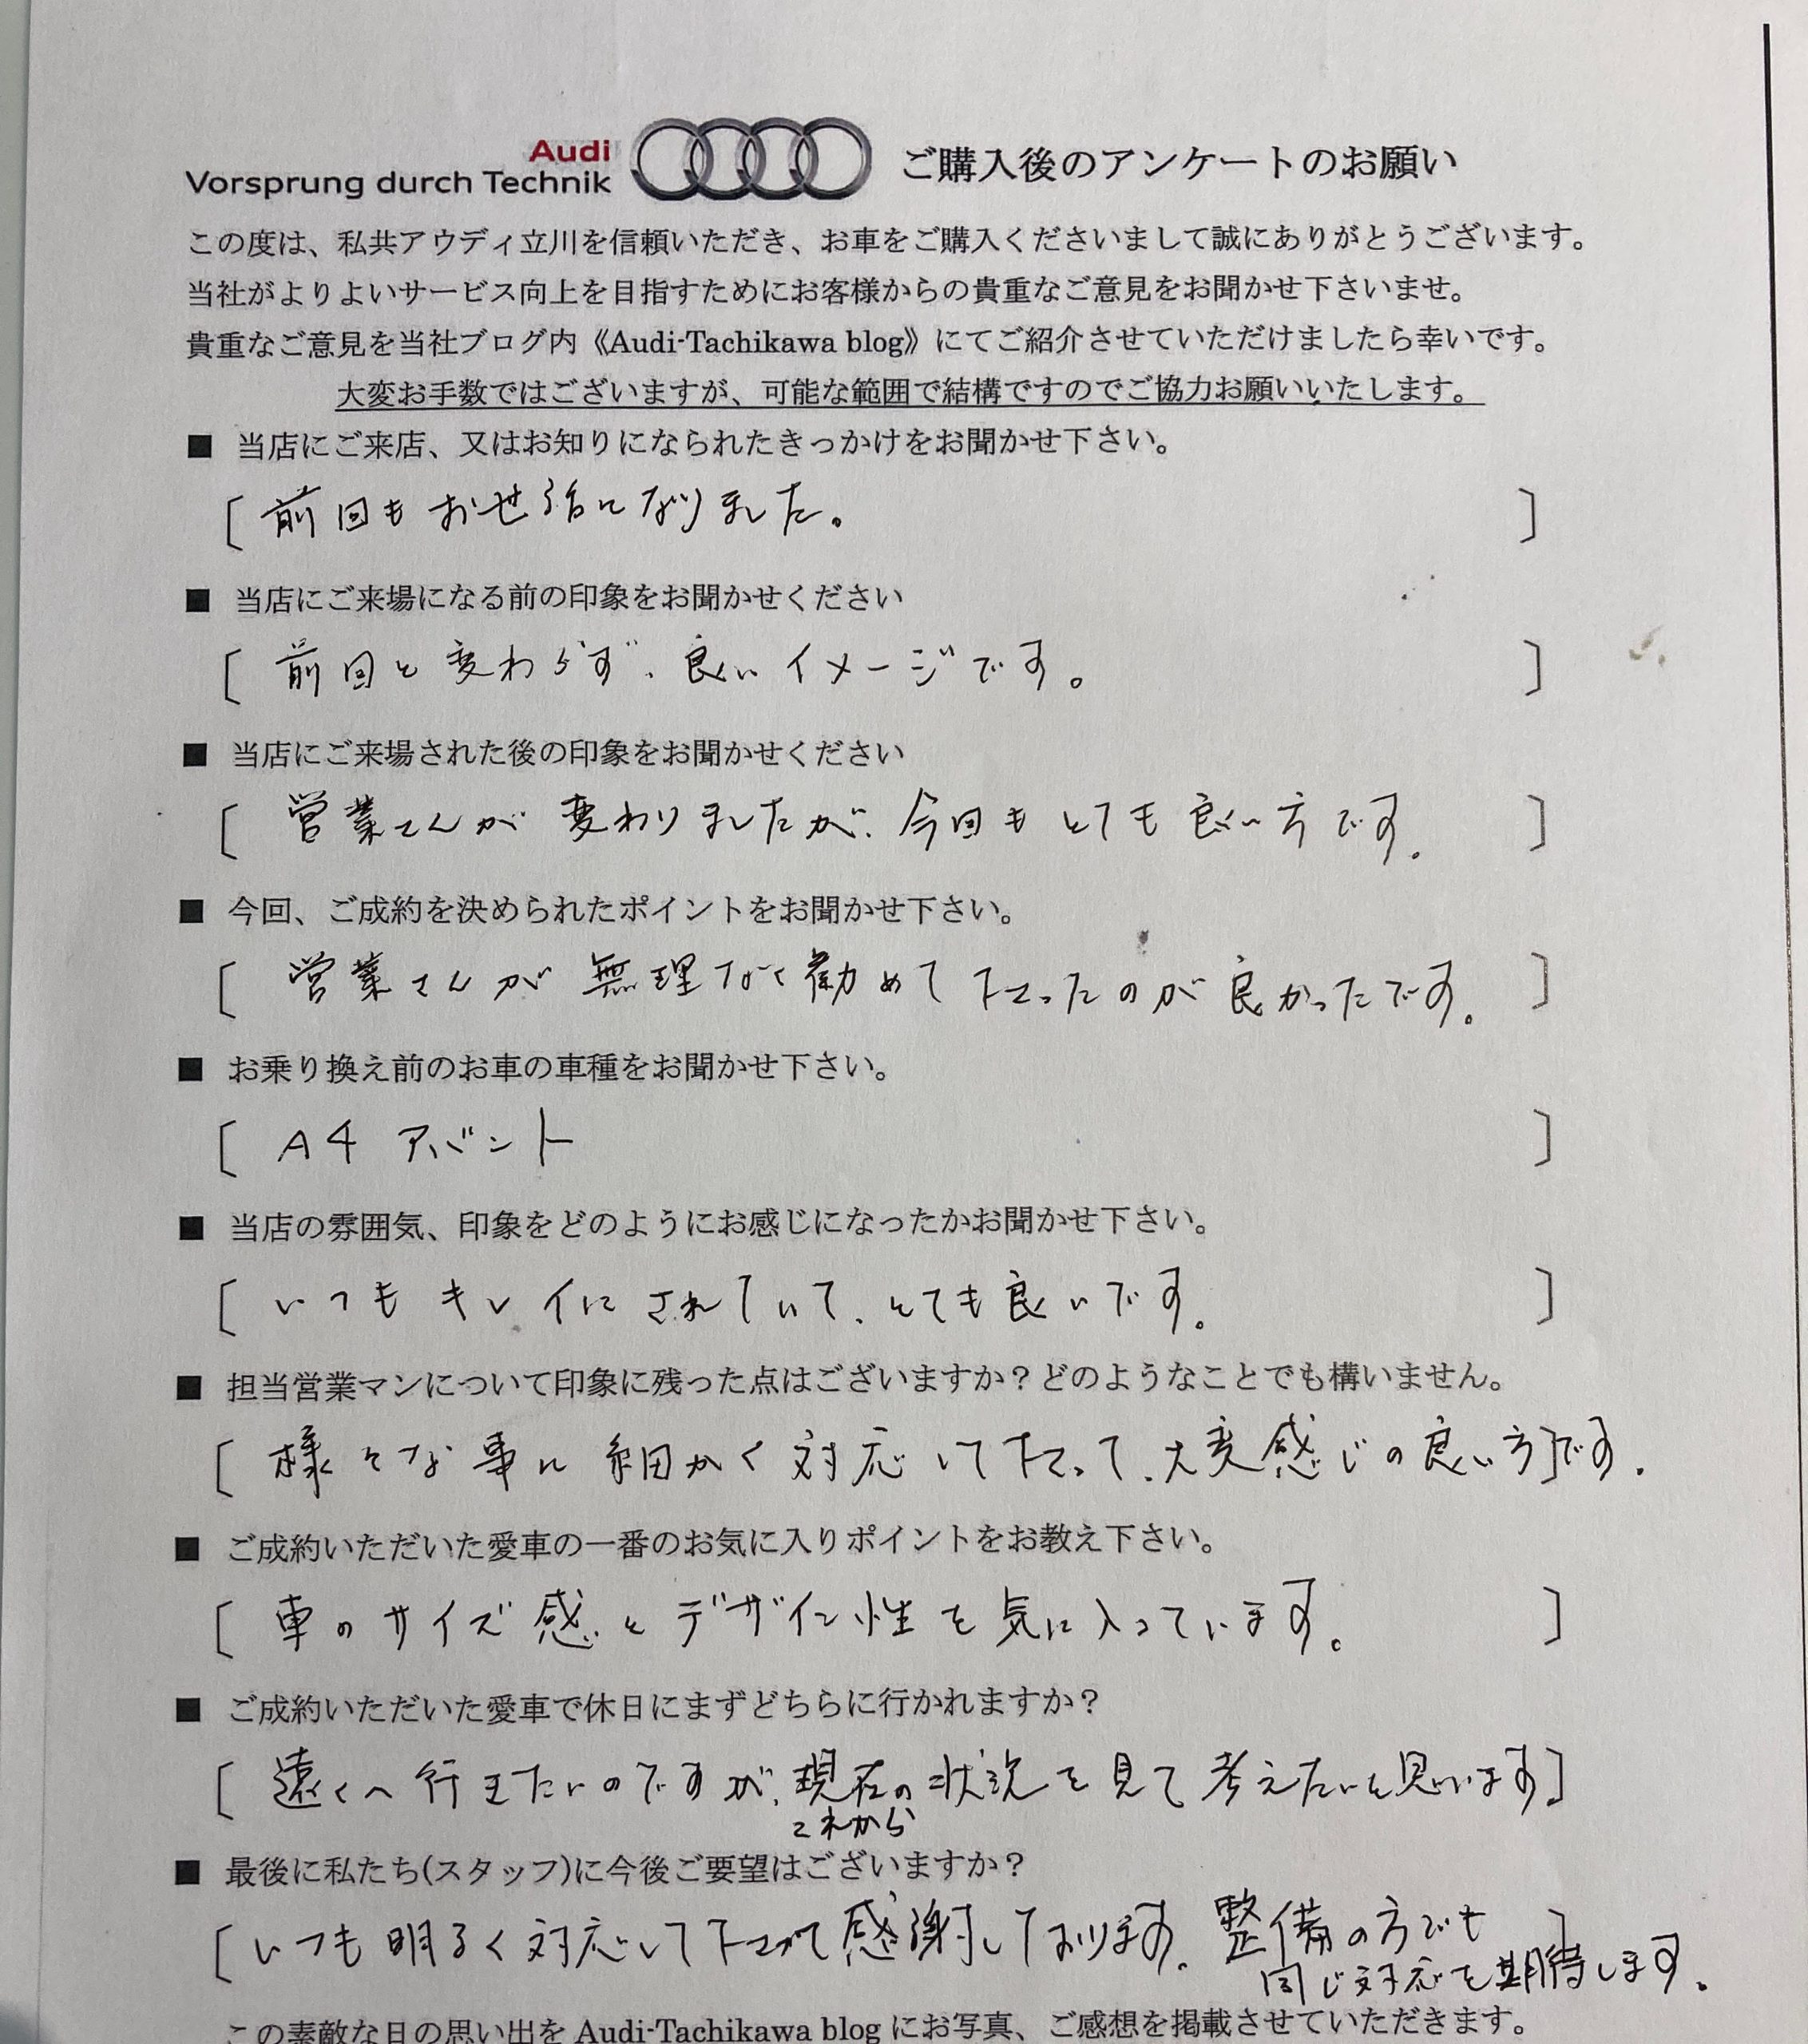 Audi
Vorsprung durch Technik
ご購入後のアンケートのお願い
この度は、私共アウディ立川を信頼いただき、お車をご購入くださいまして誠にありがとうございます。
当社がよりよいサービス向上を目指すためにお客様からの貴重なご意見をお聞かせ下さいませ。
貴重なご意見を当社ブログ内《Audi-Tachikawa blog》にてご紹介させていただけましたら幸いです。
大変お手数ではございますが、可能な範囲で結構ですのでご協力お願いいたします。
■ 当店にご来店、又はお知りになられたきっかけをお聞かせ下さい。
[ 前回もお世話になりました。 ]
■ 当店にご来場になる前の印象をお聞かせください
[ 前回と変わらず、良いイメージです。 ]
■ 当店にご来場された後の印象をお聞かせください
[ 営業さんが変わりましたが、今回もとても良い方です。 ]
■ 今回、ご成約を決められたポイントをお聞かせ下さい。
[ 営業さんが無理なく勧めて下さったのが良かったです。 ]
■ お乗り換え前のお車の車種をお聞かせ下さい。
[ A4 アバント ]
■ 当店の雰囲気、印象をどのようにお感じになったかお聞かせ下さい。
[ いつもキレイにされていて、とても良いです。 ]
■ 担当営業マンについて印象に残った点はございますか？どのようなことでも構いません。
[ 様々な事に細かく対応して下さって、大変感じの良い方]です。
■ ご成約いただいた愛車の一番のお気に入りポイントをお教え下さい。
[ 車のサイズ感とデザイン性を気に入っています。 ]
■ ご成約いただいた愛車で休日にまずどちらに行かれますか？
[ 遠くへ行きたいのですが、現在の状況を見て考えたいと思います]
これから
■ 最後に私たち(スタッフ)に今後ご要望はございますか？
[ いつも明るく対応して下さって感謝しております。整備の方でも ]
同じ対応を期待します。
この素敵な日の思い出を Audi-Tachikawa blog にお写真、ご感想を掲載させていただきます。